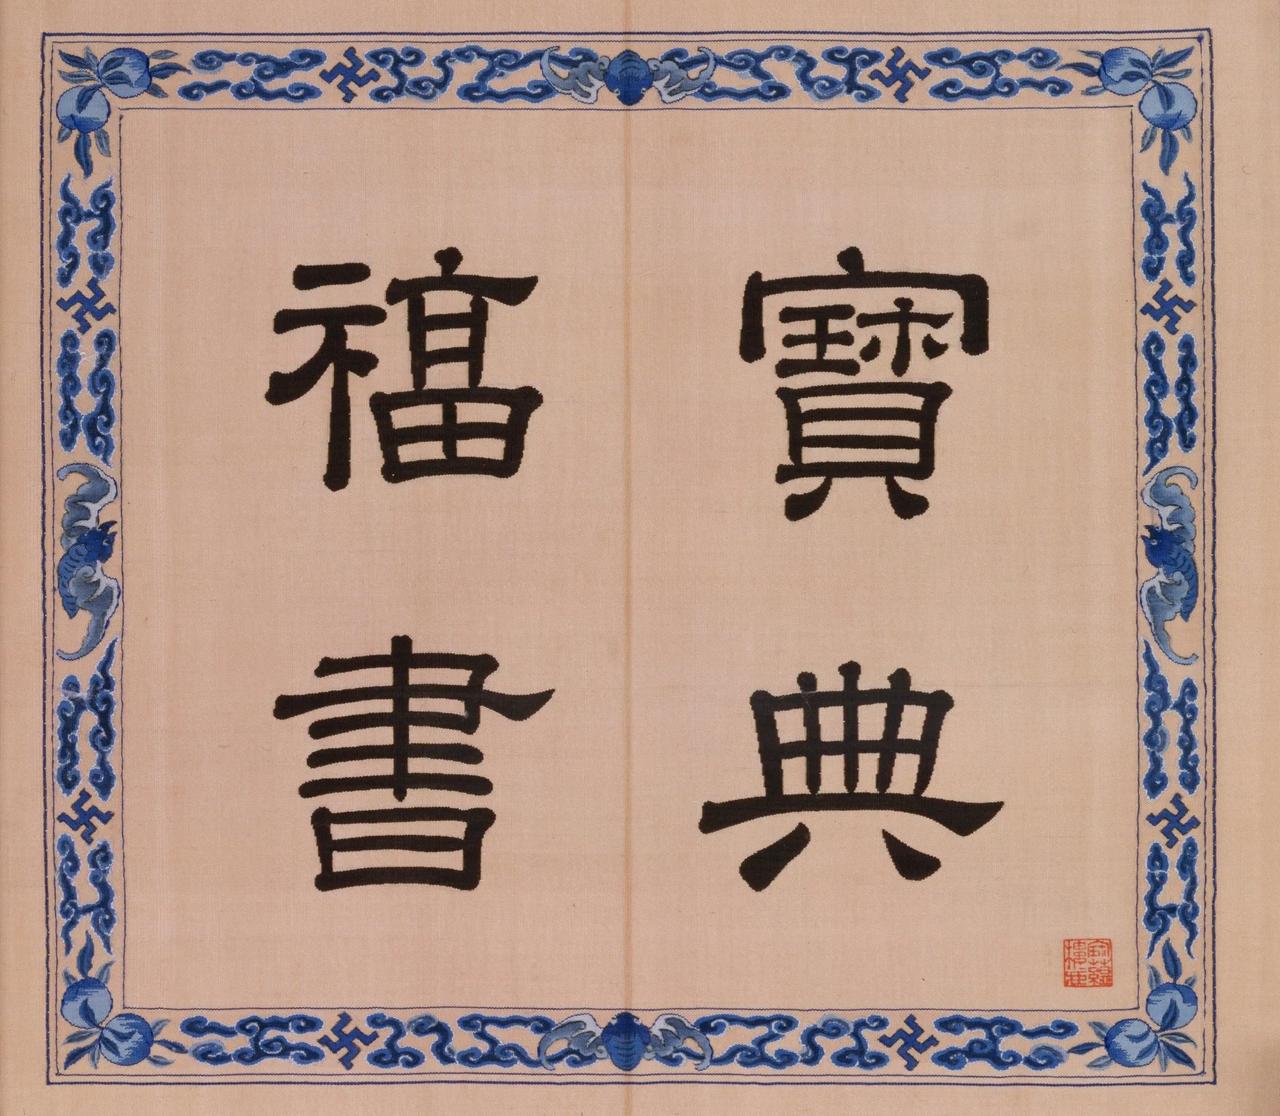 寳典
福書